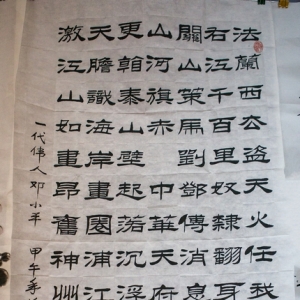 法蘭西公盜天火任我
右江千百里奴隸翻身
關山策馬劉鄧傳消息
山河旗赤中華天府
更翰泰山壁起落沉浮
天膽識海岸畫圈浦江
激江山如畫昂奮神州
一代伟人邓小平 甲午年